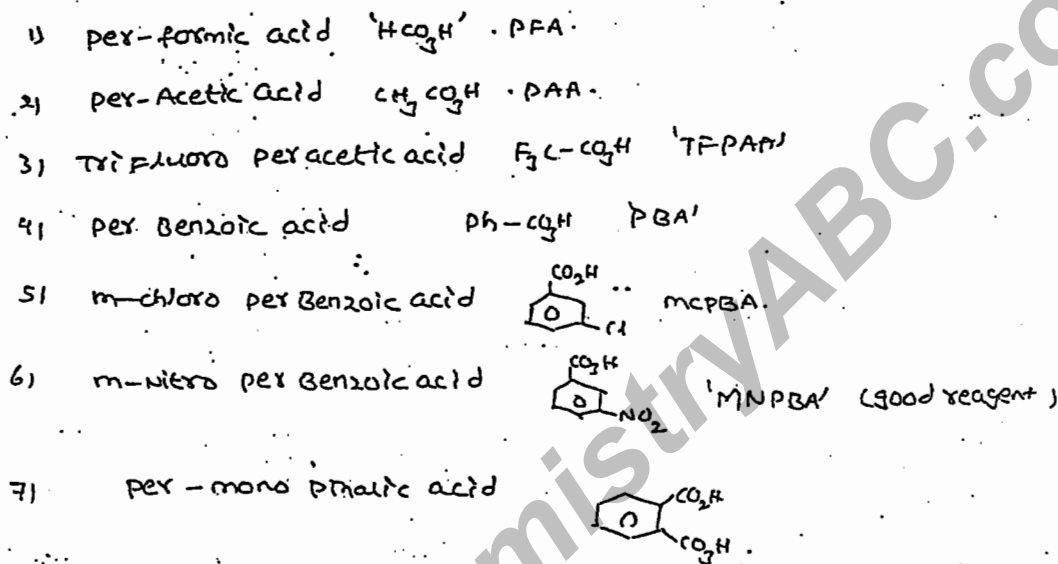 1) per-formic acid 'HCO3H' . PFA.
2) per-Acetic acid CH3CO3H . PAA.
3) Tri Fluoro peracetic acid F3C-CO3H 'TFPAA'
4) per Benzoic acid Ph-CO3H 'PBA'
CO2H
5) m-chloro per Benzoic acid Cl mcpBA.
CO3H
6) m-Nitro per Benzoic acid NO2 'MNPBA' (good reagent)
7) per-mono pthalic acid CO2H
CO3H.
mistryABC.co